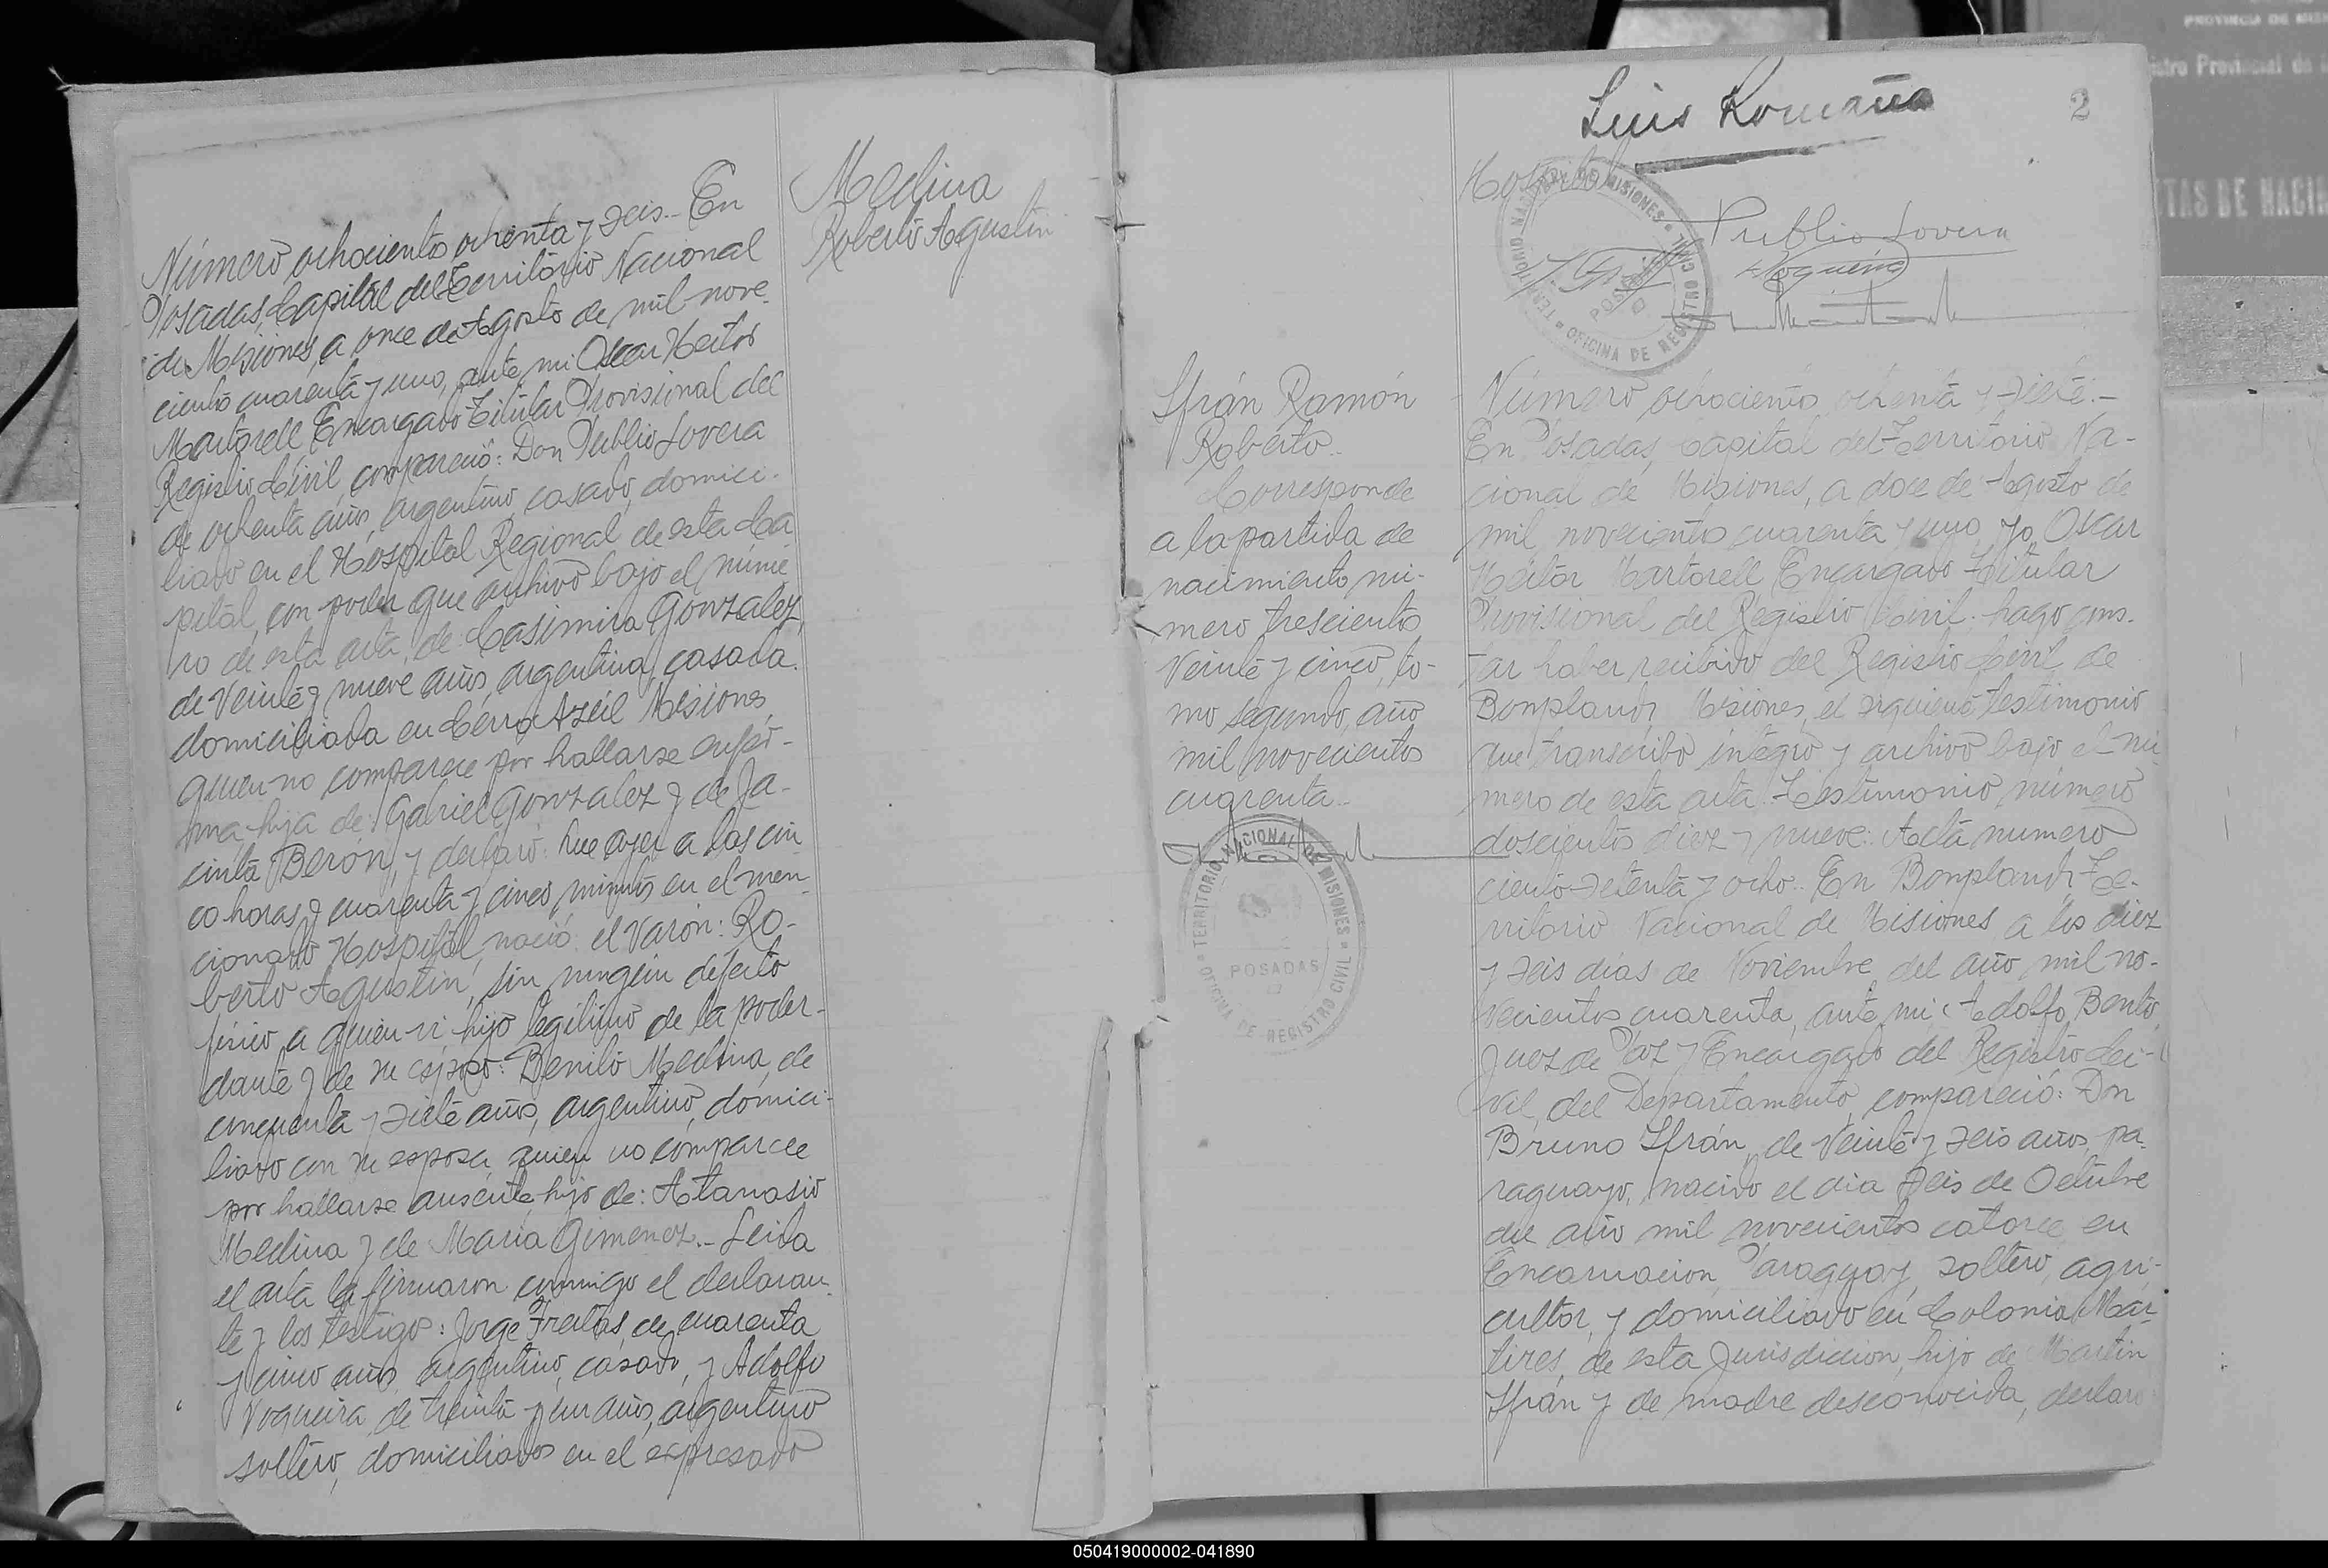 Número ochociento ochenta y seis.- En
Posadas, Capital del Territorio Nacional
de Misiones, a once de Agosto de mil nove-
ciento cuarenta y uno, ante mi Oscar Hector
Martorell Encargado Titular Provisional del
Registro Civil, compareció: Don Publio Lovera
de ochenta años, argentino, casado, domici-
liado en el Hospital Regional de esta Ca
pital, con poder que archivo bajo el núme
ro de esta acta, de: Casimira Gonzalez,
de veinte y nueve años, argentina, casada.
domiciliada en Cerro Azúl Misiones,
quien no comparece por hallarse enfer-
ma, hija de: Gabriel Gonzalez y de Ja-
cinta Berón, y declaró: Que ayer a las cin
co horas y cuarenta y cinco minutos en el men
cionado Hospital, nació: el varón: Ro-
berto Agustin, sin ningún defecto
físico a quien vi, hijo legítimo de la poder-
dante y de su esposo: Benito Medina, de
cincuenta y siete años, argentino, domici-
liado con su esposa, quien no comparece
por hallarse ausente, hijo de: Atanasio
Medina y de Maria Gimenez.- Leida
el acta la firmaron conmigo el declaran-
te y los testigos: Jorge Freitas, de cuarenta
y cinco años, argentino, casado, y Adolfo
Nogueira, de treinta y un años, argentino
soltero, domiciliados en el expresado
Medina
Roberto Agustin
Luis Romaña
2
Hospital
TERRITORIO NACIONAL DE MISIONES
OFICINA DE REGISTRO CIVIL
POSADAS
Publio Lovera
Nogueira
Ifrán Ramón
Roberto.-
Corresponde
a la partida de
nacimiento nú-
mero trescientos
veinte y cinco, to-
mo segundo, año
mil novecientos
cuarenta.-
TERRITORIO NACIONAL DE MISIONES
POSADAS
OFICINA DE REGISTRO CIVIL
Número ochociento ochenta y siete.-
En Posadas, Capital del Territorio Na-
cional de Misiones, a doce de Agosto de
mil novecientos cuarenta y uno, yo, Oscar
Hector Martorell Encargado Titular
Provisional del Registro Civil hago cons-
tar haber recibido del Registro Civil de
Bonpland, Misiones, el siguiente testimonio
que transcribo integro y archivo bajo el nú
mero de esta acta. Testimonio número
doscientos diez y nueve: Acta numero
ciento setenta y ocho.- En Bonpland, Te-
rritorio Nacional de Misiones a los diez
y seis días de Noviembre del año mil no-
vecientos cuarenta, ante mi Adolfo Bento,
Juez de Paz y Encargado del Registro Ci-
vil, del Departamento, compareció: Don
Bruno Ifrán, de veinte y seis años, pa-
raguayo, nacido el dia seis de Octubre
del año mil novecientos catorce, en
Encarnacion, Paraguay, soltero, agri-
cultor, y domiciliado en Colonia Mar-
tires, de esta Jurisdicion, hijo de Martin
Ifrán y de madre desconocida, declaró
PROVINCIA DE
Provincial de
DE NACI
050419000002-041890